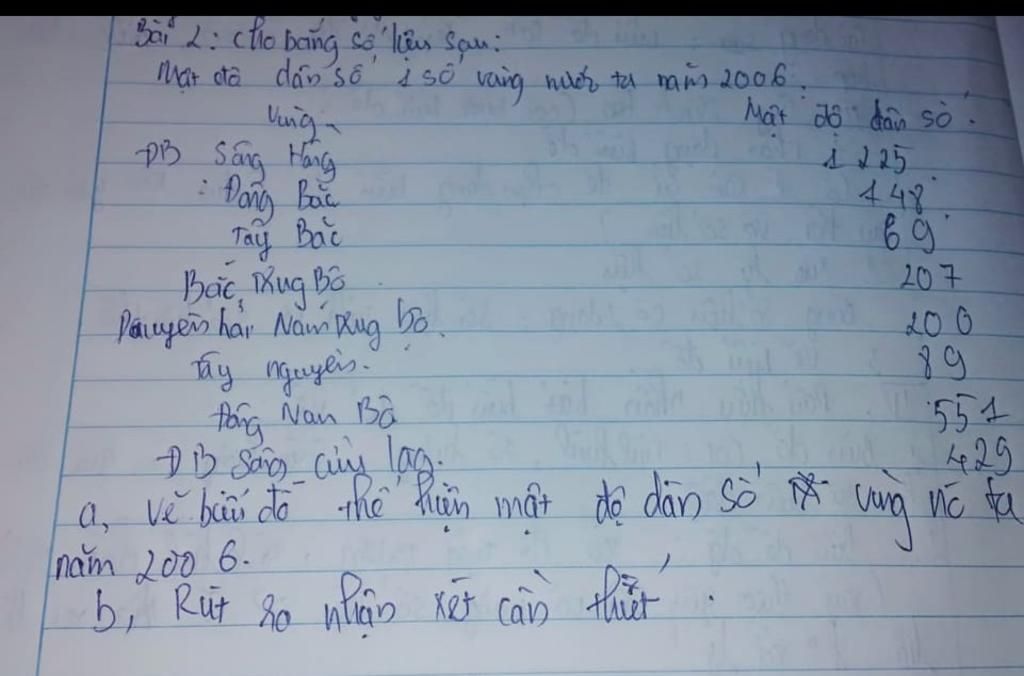 Bài 2: Cho bảng số liệu sau:
Mật độ dân số 1 số vùng nước ta năm 2006.
Vùng Mật độ dân số.
ĐB Sông Hồng 1225
Đông Bắc 148
Tây Bắc 69
Bắc Trung Bộ 207
Duyên hải Nam Trung bộ. 200
Tây nguyên. 89
Đông Nam Bộ 551
ĐB Sông cửu long. 429
a, Vẽ biểu đồ thể hiện mật độ dân số vùng nc ta
năm 2006.
b, Rút ra nhận xét cần thiết.